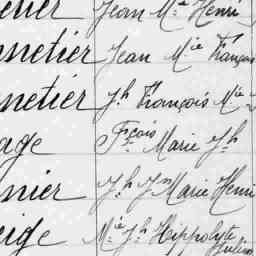 etier Jean M.ie Henri
nnetier Jean M.ie François
nnetier J.h François M.ie
age Fçois Marie J.h
nier J.h J.n Marie Henri
eige M.ie J.h Hippolyte
Julien